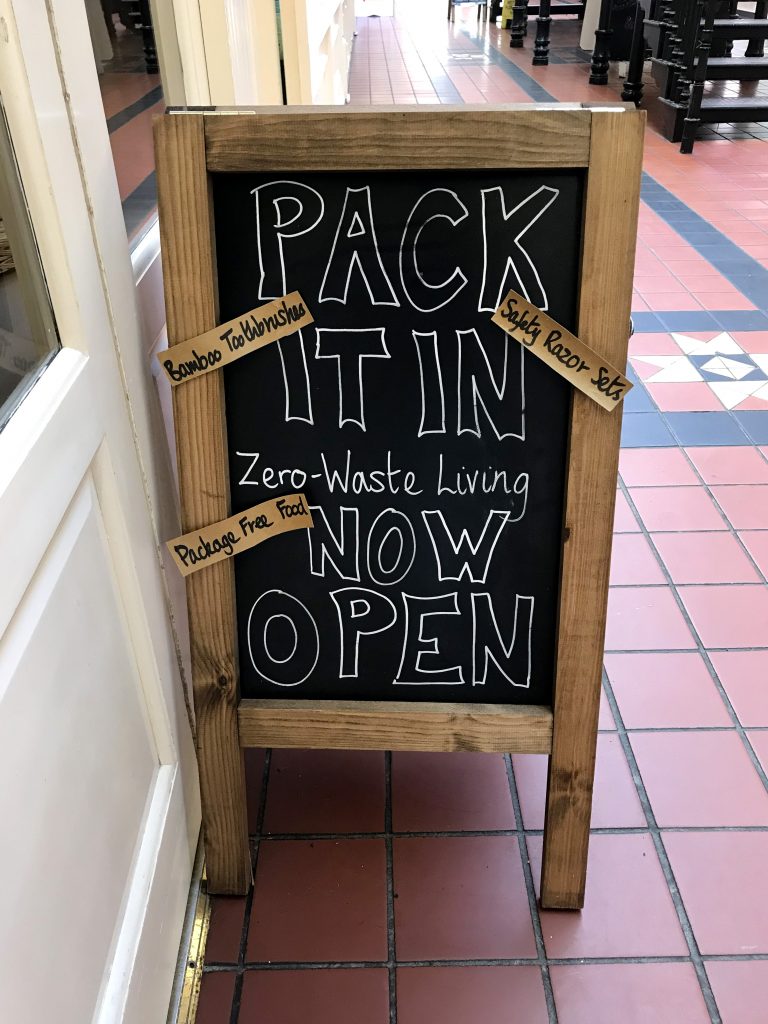 PACK
IT IN
Bamboo Toothbrushes
Safety Razor Sets
Zero-Waste Living
Package Free Food
NOW
OPEN